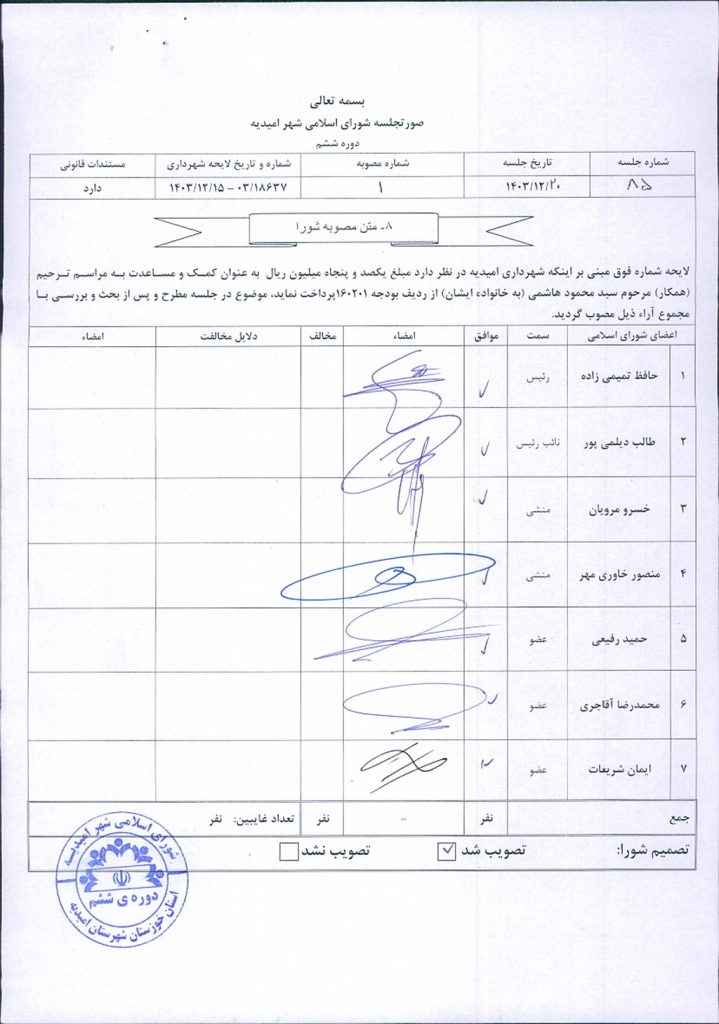 بسمه تعالی
صورتجلسه شورای اسلامی شهر امیدیه
دوره ششم
شماره جلسه تاریخ جلسه شماره مصوبه شماره و تاریخ لایحه شهرداری مستندات قانونی
۸۵ ۱۴۰۳/۱۲/۲۰ ۱ ۰۳/۱۸۶۳۷ – ۱۴۰۳/۱۲/۱۵ دارد
۸ـ متن مصوبه شورا
لایحه شماره فوق مبنی بر اینکه شهرداری امیدیه در نظر دارد مبلغ یکصد و پنجاه میلیون ریال به عنوان کمک و مساعدت به مراسم ترحیم
(همکار) مرحوم سید محمود هاشمی (به خانواده ایشان) از ردیف بودجه ۱۶۰۲۰۱پرداخت نماید، موضوع در جلسه مطرح و پس از بحث و بررسی با
مجموع آراء ذیل مصوب گردید.
اعضای شورای اسلامی سمت موافق امضاء مخالف دلایل مخالفت امضاء
۱ حافظ تمیمی زاده رئیس ✓
۲ طالب دیلمی پور نائب رئیس ✓
۳ خسرو مرویان منشی ✓
۴ منصور خاوری مهر منشی ✓
۵ حمید رفیعی عضو ✓
۶ محمدرضا آقاجری عضو ✓
۷ ایمان شریفات عضو ✓
جمع نفر – نفر تعداد غایبین: نفر
تصمیم شورا: تصویب شد ☑ تصویب نشد ☐
شورای اسلامی شهر امیدیه
دوره ی ششم
استان خوزستان شهرستان امیدیه